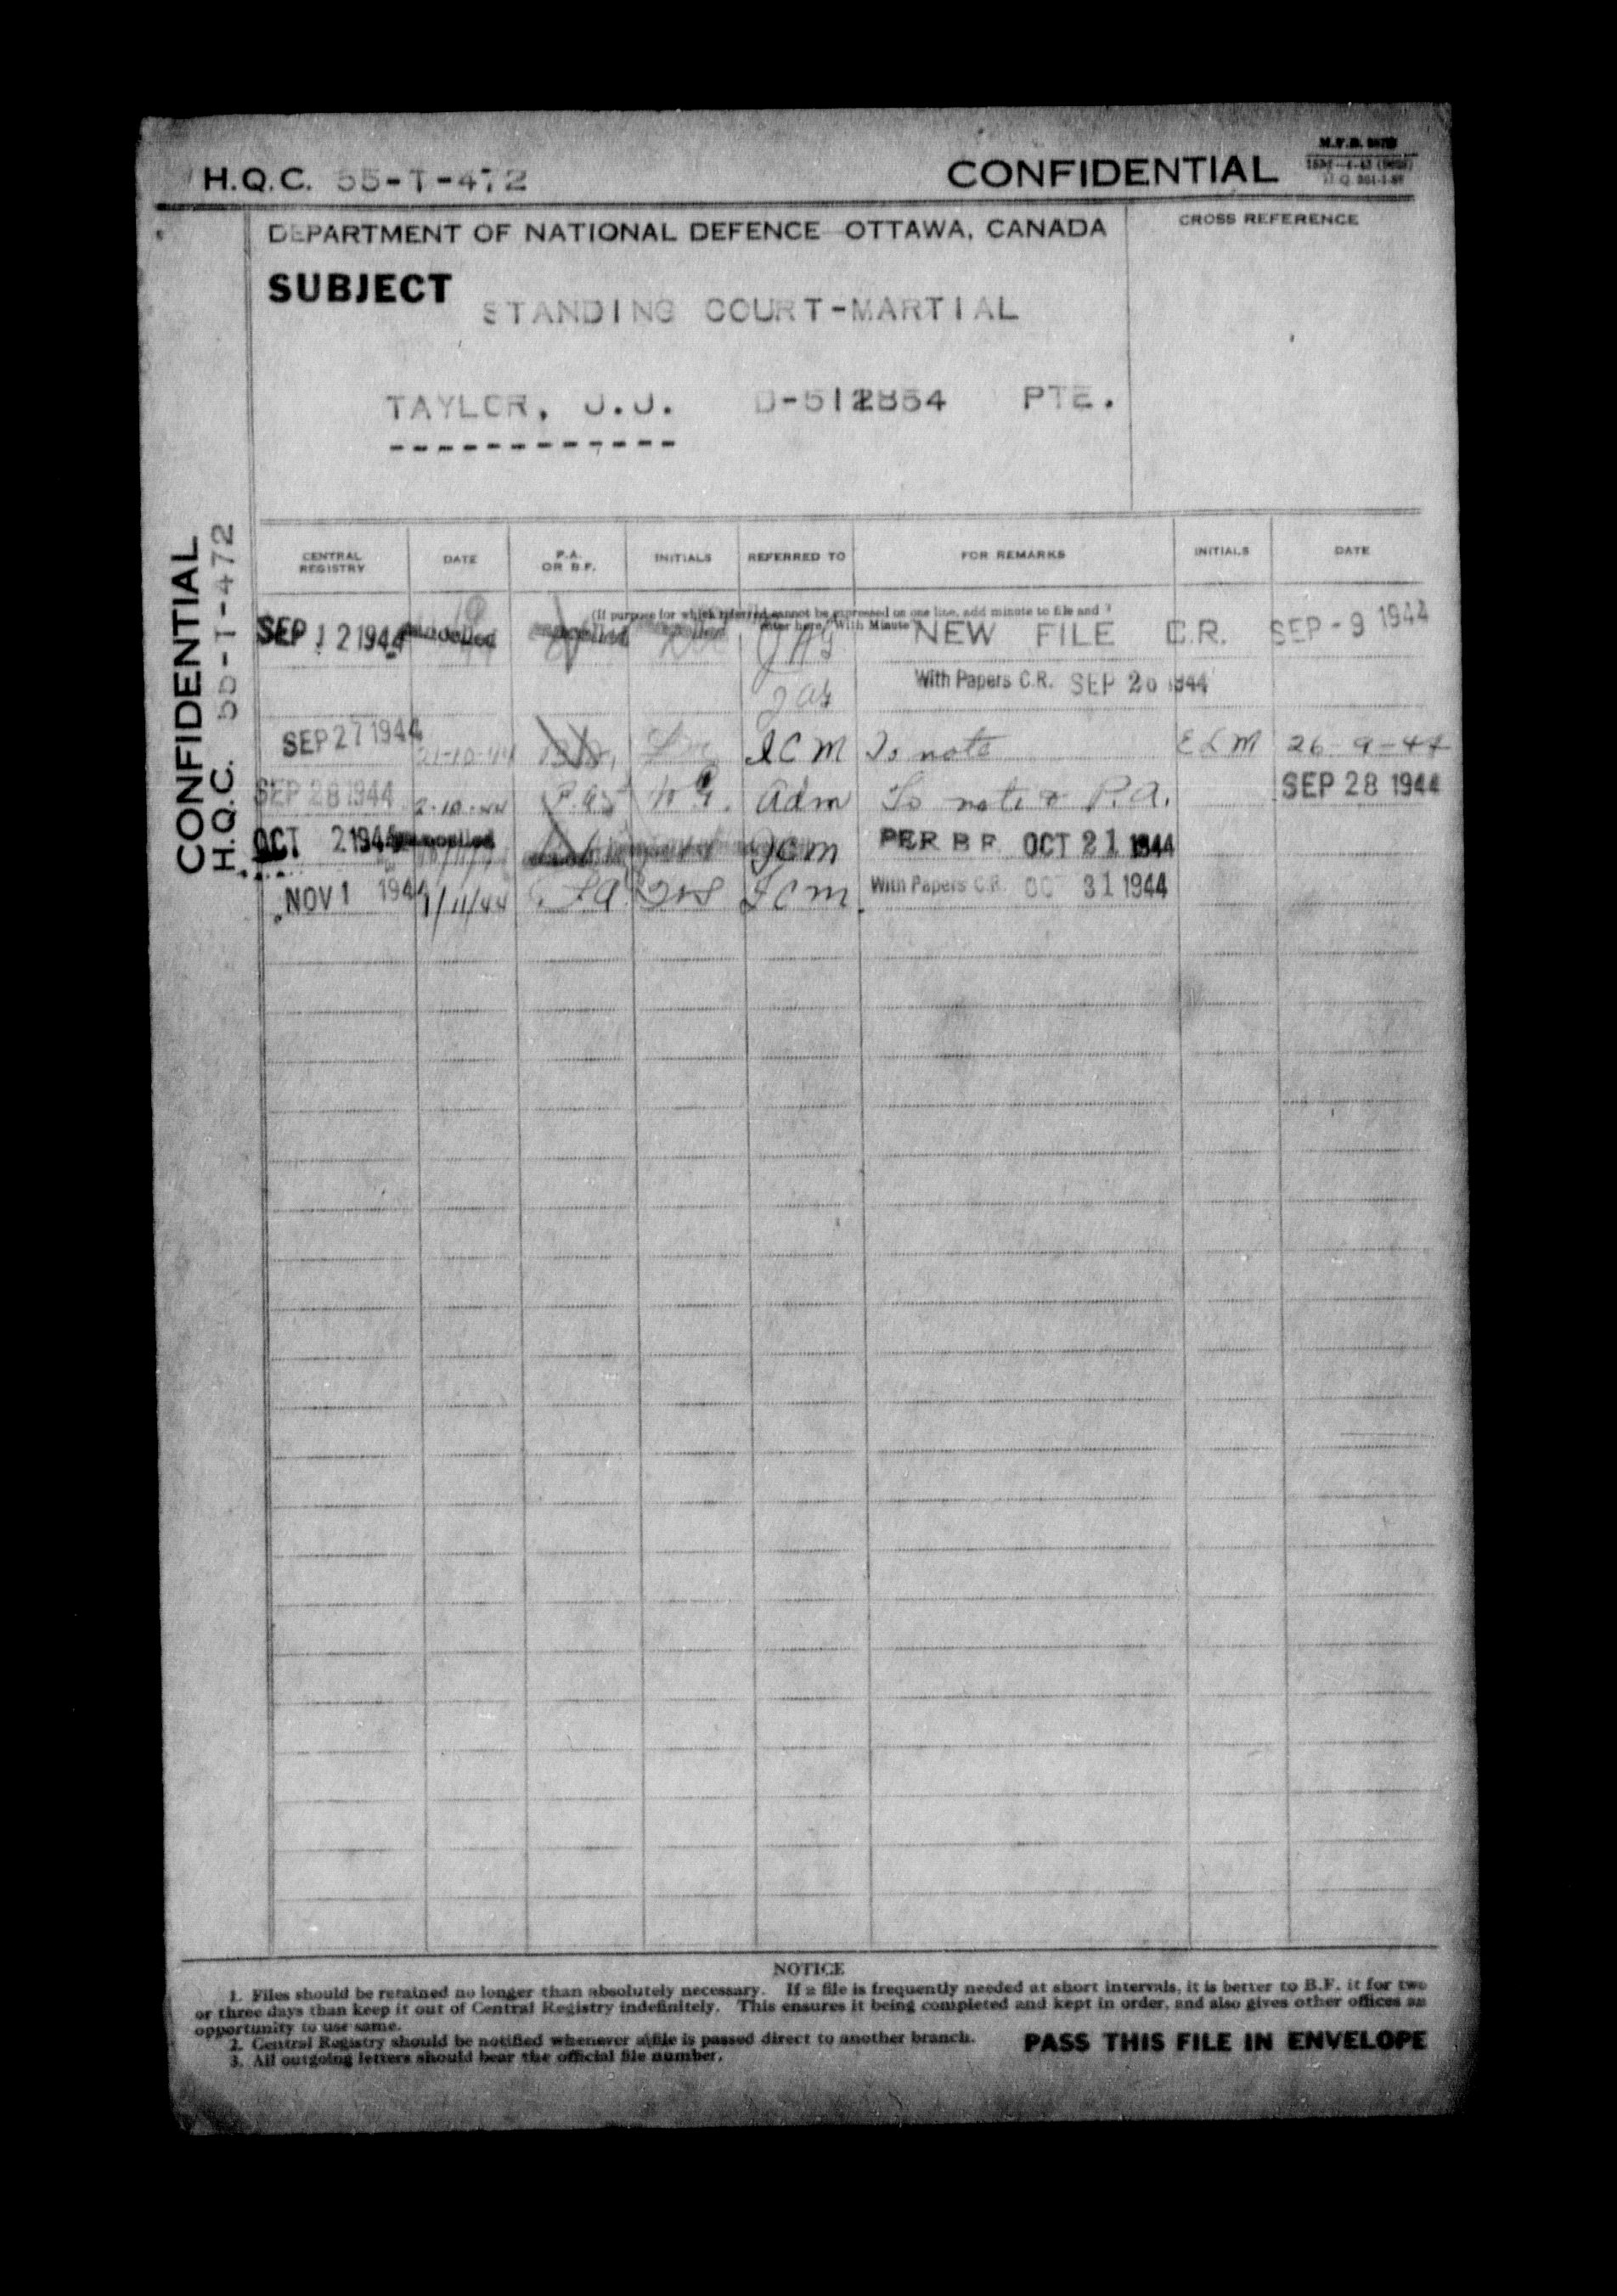 H.Q.C. 55-T-472
CONFIDENTIAL
DEPARTMENT OF NATIONAL DEFENCE OTTAWA, CANADA
CROSS REFERENCE
SUBJECT
STANDING COURT-MARTIAL
TAYLOR, J.J. D-512854 PTE.
------------
CONFIDENTIAL
H.Q.C. 55-T-472
CENTRAL REGISTRY DATE P.A. OR B.F. INITIALS REFERRED TO FOR REMARKS INITIALS DATE
(If purpose for which referred cannot be expressed on one line, add minute to file and
enter here, "With Minute"
SEP 12 1944 Cancelled JAG NEW FILE C.R. SEP - 9 1944
JAG With Papers C.R. SEP 26 1944
SEP 27 1944 21-10-44 JCM To note ELM 26-9-44
SEP 28 1944 2-10-44 P.A. Adm To note & P.A. SEP 28 1944
OCT 2 1944 Cancelled JCM PER B F OCT 21 1944
NOV 1 1944 1/11/44 P.A. JCM With Papers C.R. OCT 31 1944
NOTICE
1. Files should be retained no longer than absolutely necessary. If a file is frequently needed at short intervals, it is better to B.F. it for two
or three days than keep it out of Central Registry indefinitely. This ensures it being completed and kept in order, and also gives other offices an
opportunity to use same.
2. Central Registry should be notified whenever a file is passed direct to another branch.
3. All outgoing letters should bear the official file number.
PASS THIS FILE IN ENVELOPE